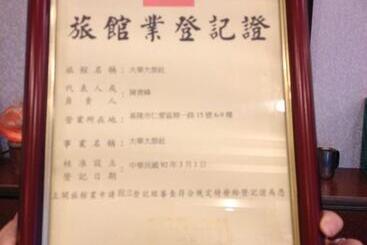 旅館業登記證
旅館名稱：大華大旅社
代表人或
負責人：陳
營業所在地：基隆市仁愛區孝一路15號6-9樓
事業名稱：大華大旅社
核准設立
登記日期：中華民國92年3月3日
上開旅館業申請設立登記經審查符合規定特發給登記證為憑